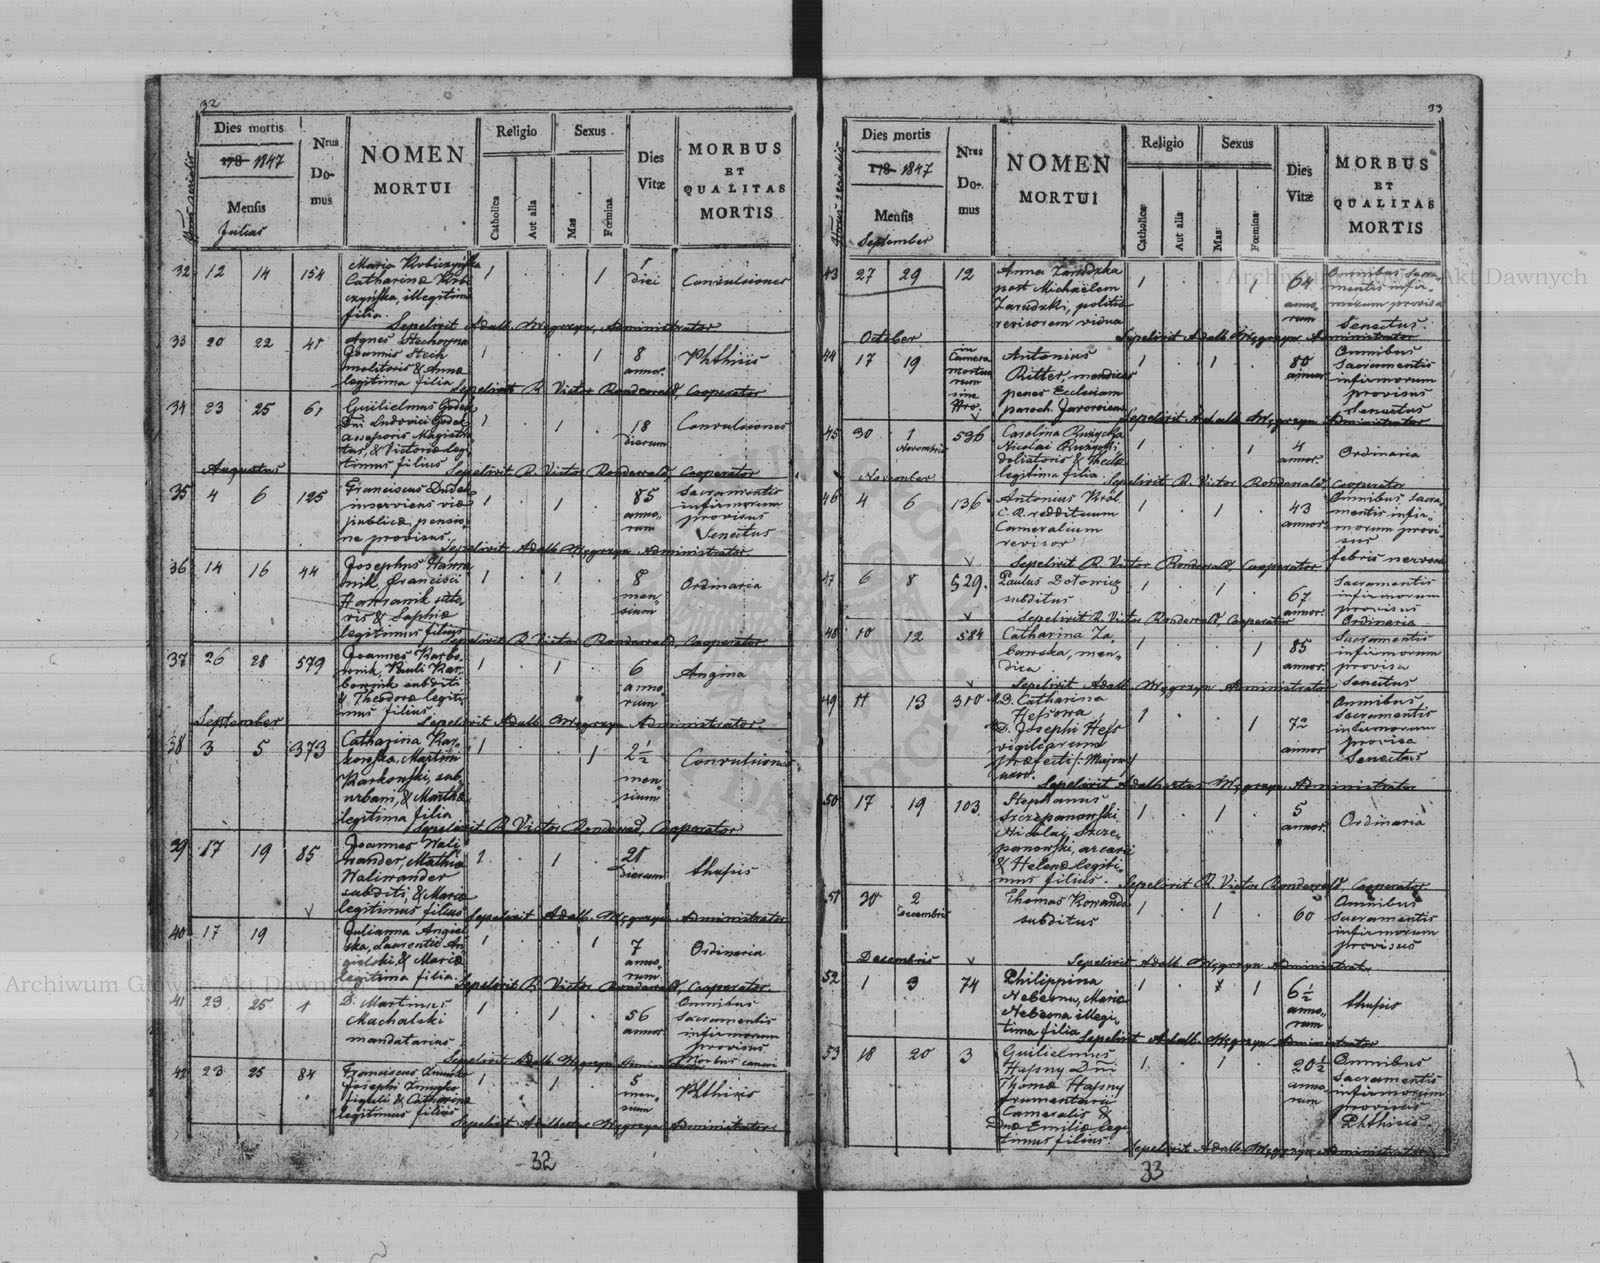 32
Dies mortis
178 1847
Mensis
Julius
Nrus
Do-
mus
NOMEN
MORTUI
Religio
Catholica
Aut alia
Sexus
Mas
Fœmina
Dies
Vitæ
MORBUS
ET
QUALITAS
MORTIS
32 12 14 154
Catharinæ
illegitima
filia
1 1
1
diei
Convulsiones
Sepelivit Adalb. Węgrzyn, Administrator
33 20 22
Agnes
Joannis Stech
molitoris & Annæ
legitima filia
1 1
8
annor.
Phthisis
Sepelivit R. Victor Ronderwald, Cooperator
34 23 25 61
Guilielmus Godek
Dni Ludovici Godek
assessoris Magistra
tus, & Victoriæ legi
timus filius
1 1
18
dierum
Convulsiones
Sepelivit R. Victor Ronderwald, Cooperator
Augustus
35 4 6 125
Franciscus Dudek
inserviens viæ
publicæ, pensio-
ne provisus.
1 1
85
anno-
rum
Sacramentis
infirmorum
provisus
Senectus
Sepelivit Adalb. Węgrzyn Administrator
36 14 16 44
Josephus
nik, Francisci
suto-
ris & Sophiæ
legitimus filius
1 1
8
men-
sium
Ordinaria
Sepelivit R. Victor Ronderwald, Cooperator
37 26 28 579
Joannes Karbo-
wnik, Pauli Kar-
bownik subditi
& Theodoræ legiti-
mus filius
1 1
6
anno-
rum
Angina
Sepelivit Adalb. Węgrzyn Administrator
September
38 3 5 373
Catharina Kar-
kowska, Martini
Karkowski, sub-
urbani, & Marthæ
legitima filia
1 1
2½
men-
sium
Convulsiones
Sepelivit R. Victor Ronderwald, Cooperator
39 17 19 85
Joannes Wali
wander, Mathiæ
Waliwander
subditi, & Mariæ
legitimus filius
1 1
21
dierum
thusis
Sepelivit Adalb. Węgrzyn Administrator
40 17 19
Julianna Angiel
ska, Laurentii An
gielski, & Mariæ
legitima filia
1 1
7
anno-
rum
Ordinaria
Sepelivit R. Victor Ronderwald, Cooperator
41 23 25 1
D. Martinus
Machalski
mandatarius
1 1
56
annor
Omnibus
Sacramentis
infirmorum
provisus
Morbus cancri
Sepelivit Adalb. Węgrzyn Administrator
42 23 25 84
Franciscus
Josephi
figuli & Catharinæ
legitimus filius
1 1
5
men-
sium
Phthisis
Sepelivit Adalbertus Węgrzyn Administrator
32
33
Dies mortis
178 1847
Mensis
September
Nrus
Do-
mus
NOMEN
MORTUI
Religio
Catholica
Aut alia
Sexus
Mas
Fœmina
Dies
Vitæ
MORBUS
ET
QUALITAS
MORTIS
43 27 29 12
Anna Zarudzka
post Michaëlem
Zarudzki, politiæ
revisorem vidua
1 1
64
anno-
rum
Omnibus Sacra-
mentis infir-
morum provisa
Senectus
Sepelivit Adalb. Węgrzyn Administrator
October
44 17 19
in
Camera
mortuo
rum
sine
Nro.
Antonius
Ritter, mendicus
penes Ecclesiam
paroch.
1 1
80
annor
Omnibus
Sacramentis
infirmorum
provisus
Senectus
Sepelivit Adalb. Węgrzyn Administrator
45 30 1 536
Novembris
Carolina Ruzycka
Nicolai Ruzycki
doliatoris & Theclæ
legitima filia
1 1
4
annor.
Ordinaria
Sepelivit R. Victor Ronderwald, Cooperator
November
46 4 6 136
Antonius Król
C. R. reddituum
Cameralium
revisor
1 1
43
annor
Omnibus Sacra-
mentis infir-
morum provi-
sus
febris nervosa
Sepelivit R. Victor Ronderwald, Cooperator
47 6 8 529
Paulus Dotowicz
subditus
1 1
67
annor.
Sacramentis
infirmorum
provisus
Ordinaria
Sepelivit R. Victor Ronderwald Cooperator
48 10 12 584
Catharina Za-
bawska, men-
dica
1 1
85
annor.
Sacramentis
infirmorum
provisa
Senectus
Sepelivit Adalb. Węgrzyn Administrator
49 11 13 310
D. Catharina
Hessowa,
D. Josephi Hess
vigiliarum
præfecti /: Major :/
uxor.
1 1
72
annor
Omnibus
Sacramentis
infirmorum
provisa
Senectus
Sepelivit Adalbertus Węgrzyn Administrator
50 17 19 103
Stephanus
Szczepanowski
Nicolai Szcze-
panowski, arcarii
& Helenæ legiti-
mus filius
1 1
5
annor.
Ordinaria
Sepelivit R. Victor Ronderwald, Cooperator
51 30 2
Decembris
Thomas Kowanda
subditus
1 1
60
Omnibus
Sacramentis
infirmorum
provisus
Sepelivit Adalb. Węgrzyn Administrator
Decembris
52 1 3 74
Philippina
Nebesna, Mariæ
Nebesna illegi-
tima filia
1 1
6½
anno-
rum
thusis
Sepelivit Adalb. Węgrzyn Administrator
53 18 20 3
Guilielmus
Hassny Dni
Thomæ Hassny
frumentarii
Cameralis &
Dnæ Emiliæ legi
timus filius
1 1
20½
anno-
rum
Omnibus
Sacramentis
infirmorum
provisus
Phthisis
Sepelivit Adalb. Węgrzyn Administrator
33
Archiwum Główne Akt Dawnych
Archiwum Główne Akt Dawnych